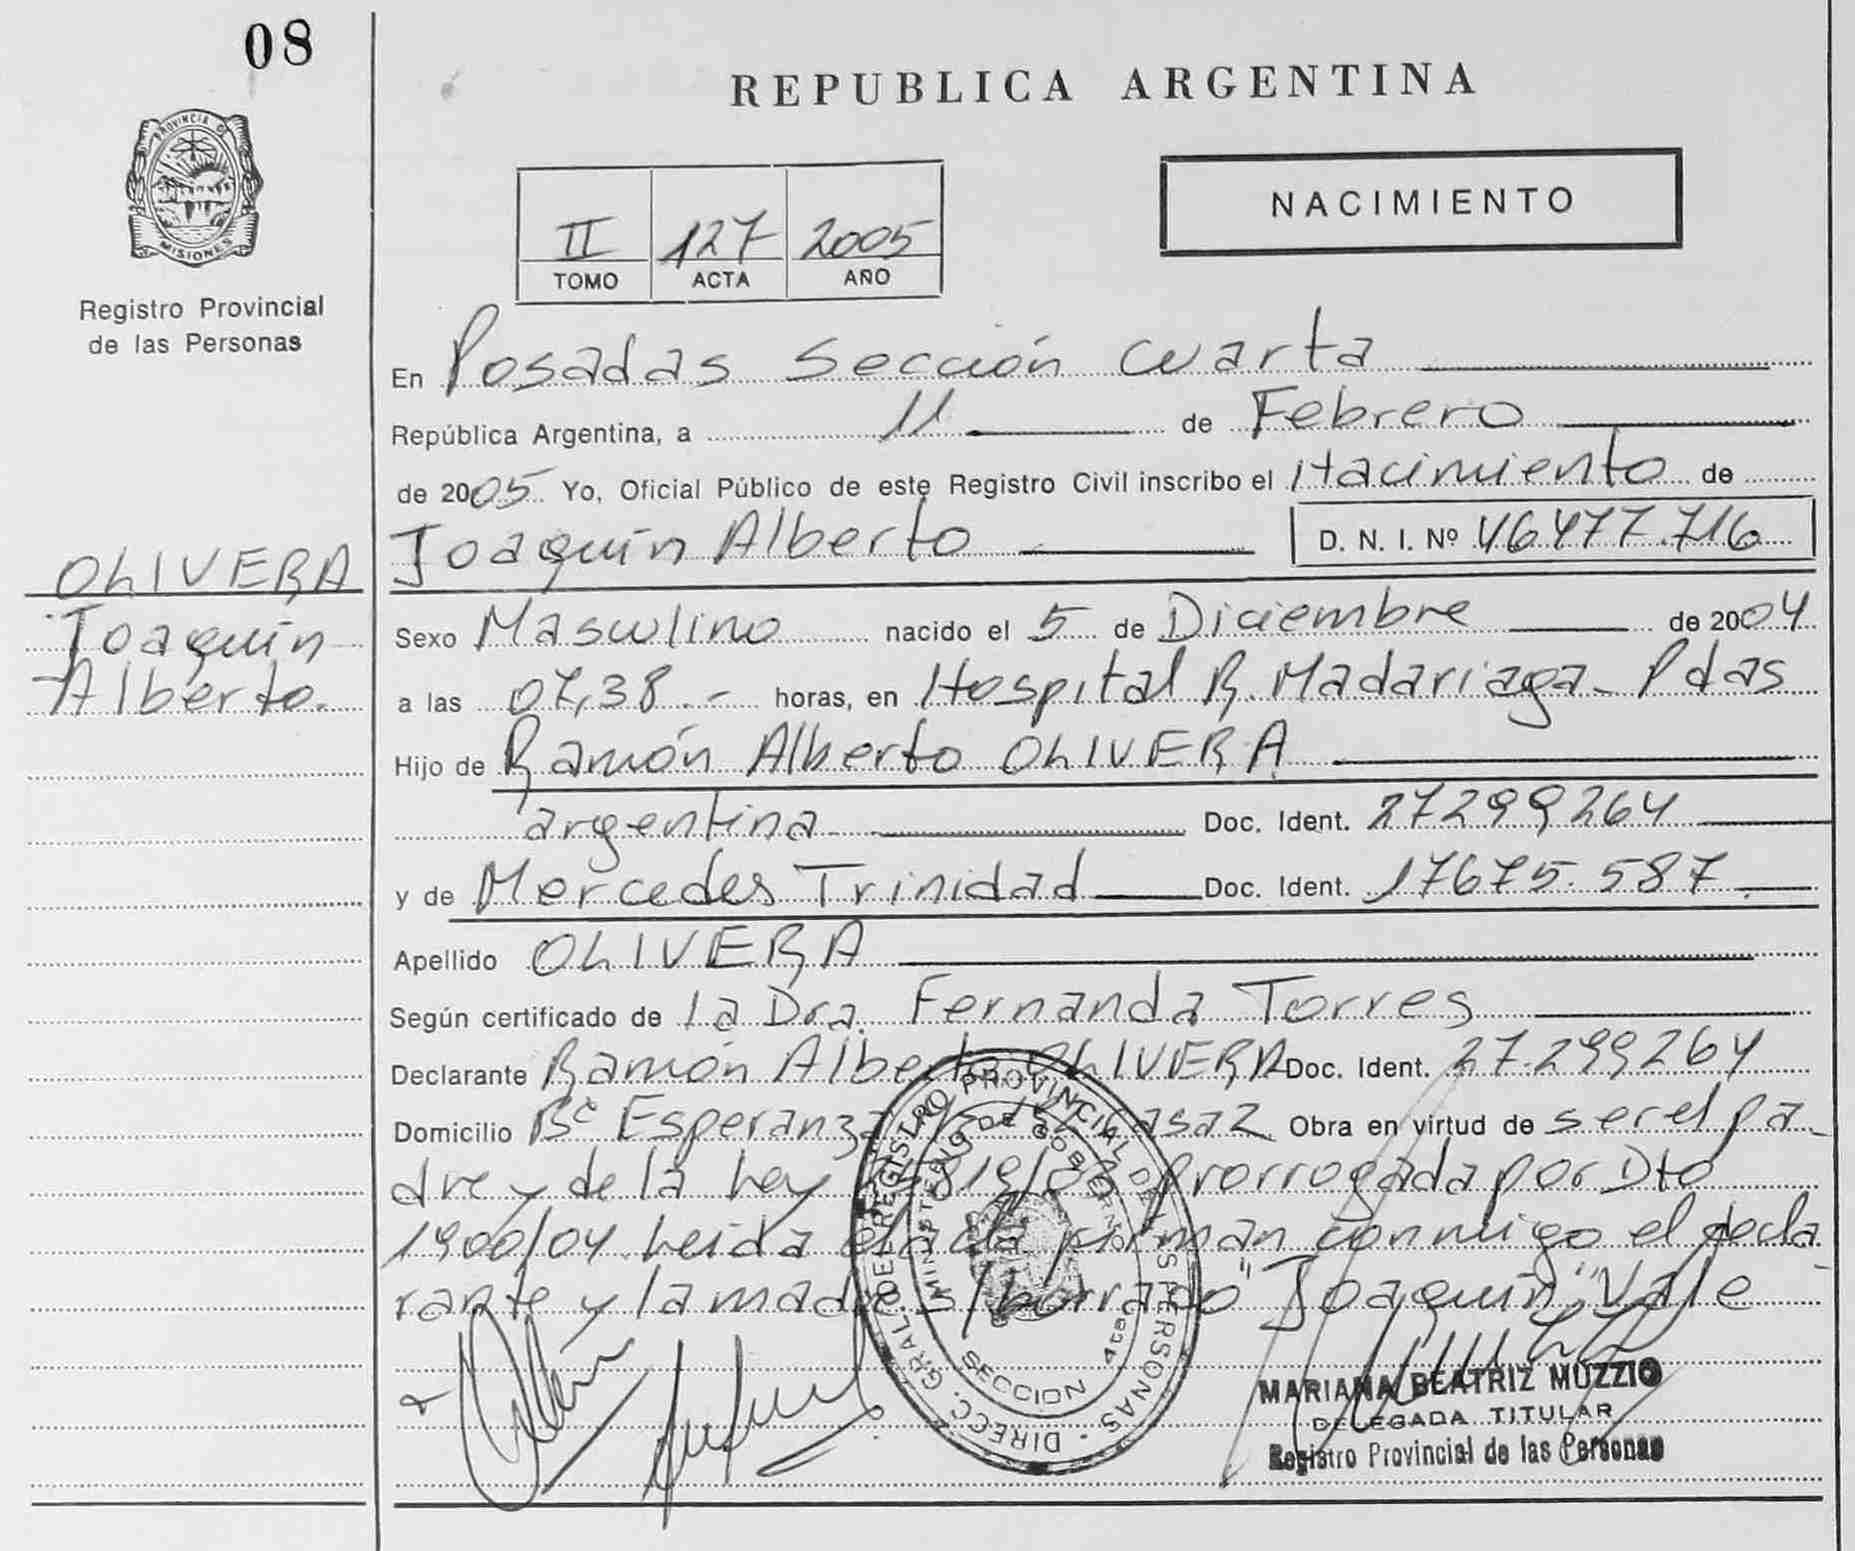 08
REPUBLICA ARGENTINA
PROVINCIA DE
MISIONES
Registro Provincial
de las Personas
NACIMIENTO
II 127 2005
TOMO ACTA AÑO
En Posadas Sección Cuarta
República Argentina, a 11 de Febrero
de 2005 Yo, Oficial Público de este Registro Civil inscribo el Nacimiento de
Joaquín Alberto D. N. I. Nº 46477.716
OLIVERA
Joaquín
Alberto.
Sexo Masculino nacido el 5 de Diciembre de 2004
a las 07,38.- horas, en Hospital R. Madariaga- Pdas
Hijo de Ramón Alberto OLIVERA
argentina Doc. Ident. 27299264
y de Mercedes Trinidad Doc. Ident. 17675.587.
Apellido OLIVERA
Según certificado de la Dra. Fernanda Torres
Declarante Ramón Alberto OLIVERA Doc. Ident. 27.299264
Domicilio Bº Esperanza casa 2 Obra en virtud de ser el pa-
dre y de la Ley 25819/03 prorrogada por Dto
1900/04. Leida el acta firman conmigo el decla
rante y la madre s/borrado "Joaquín" Vale-
DIRECC. GRAL. DEL REGISTRO PROVINCIAL DE LAS PERSONAS
MINISTERIO DE GOBIERNO
SECCION 4ta.
MARIANA BEATRIZ MUZZIO
DELEGADA TITULAR
Registro Provincial de las Personas